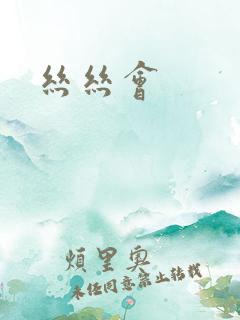 絲絲會
煩里奧
未經同意禁止轉載